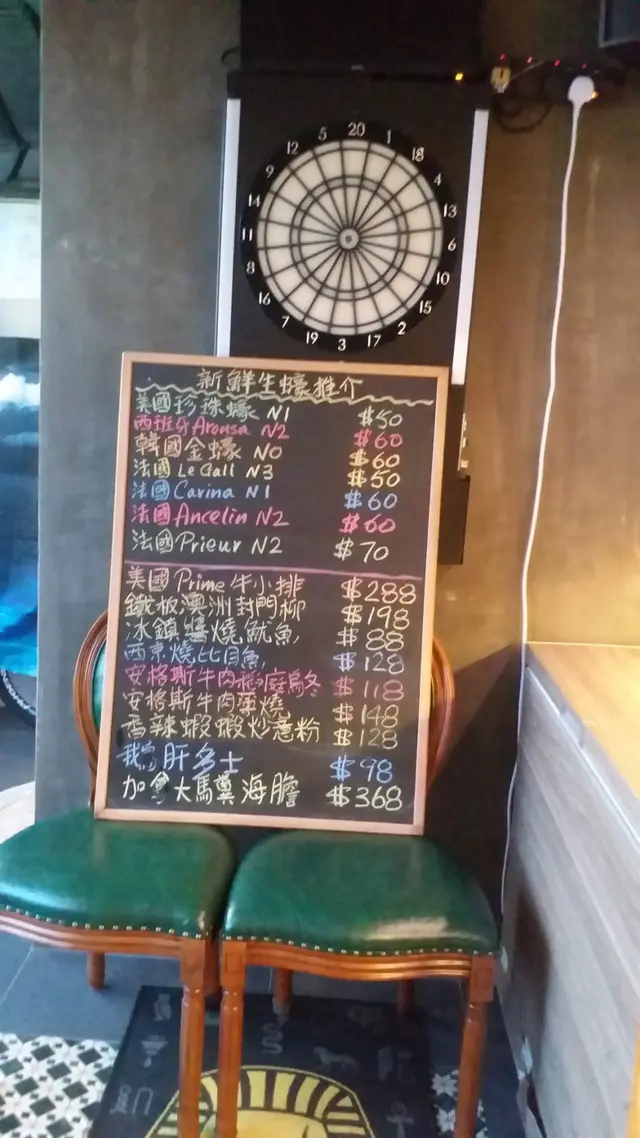 20
5 1
12 18
9 4
14 13
11 6
8 10
16 15
7 2
19 17
3
新鮮生蠔推介
美國珍珠蠔 N1 $50
西班牙Arousa N2 $60
韓國金蠔 N0 $60
法國 Le Gall N3 $50
法國 Carina N1 $60
法國 Ancelin N2 $60
法國 Prieur N2 $70
美國 Prime 牛小排 $288
鐵板澳洲封門柳 $198
冰鎮醬燒魷魚 $88
西京燒比目魚 $128
安格斯牛肉稻庭烏冬 $118
安格斯牛肉 燒 $148
香辣蝦蝦炒薏粉 $128
鵝肝多士 $98
加拿大馬糞海膽 $368